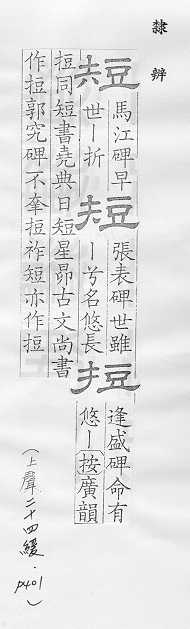 隸辨
短 馬江碑早世丨折
短 張表碑世雖丨兮名悠長
𢭃 逢盛碑命有悠丨按廣韻
𢭃同短書堯典日短星昴古文尚書
作𢭃郭究碑不幸𢭃祚短亦作𢭃
(上聲二十四緩．p401)